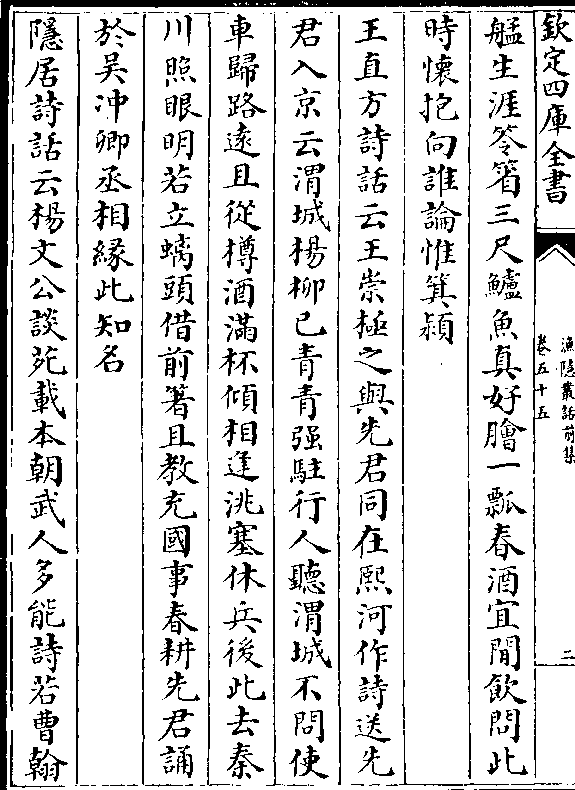 欽定四庫全書
漁隱叢話前集
卷五十五
二
艋生涯笭箵三尺鱸魚真好膾一瓢春酒宜閒飲問此
時懷抱向誰論惟箕潁
王直方詩話云王崇極之與先君同在熙河作詩送先
君入京云渭城楊柳已青青强駐行人聽渭城不問使
車歸路逺且從樽酒滿杯傾相逢洮塞休兵後此去秦
川照眼明若立螭頭借前箸且教充國事春耕先君誦
於吴冲卿丞相緣此知名
隱居詩話云楊文公談苑載本朝武人多能詩若曹翰